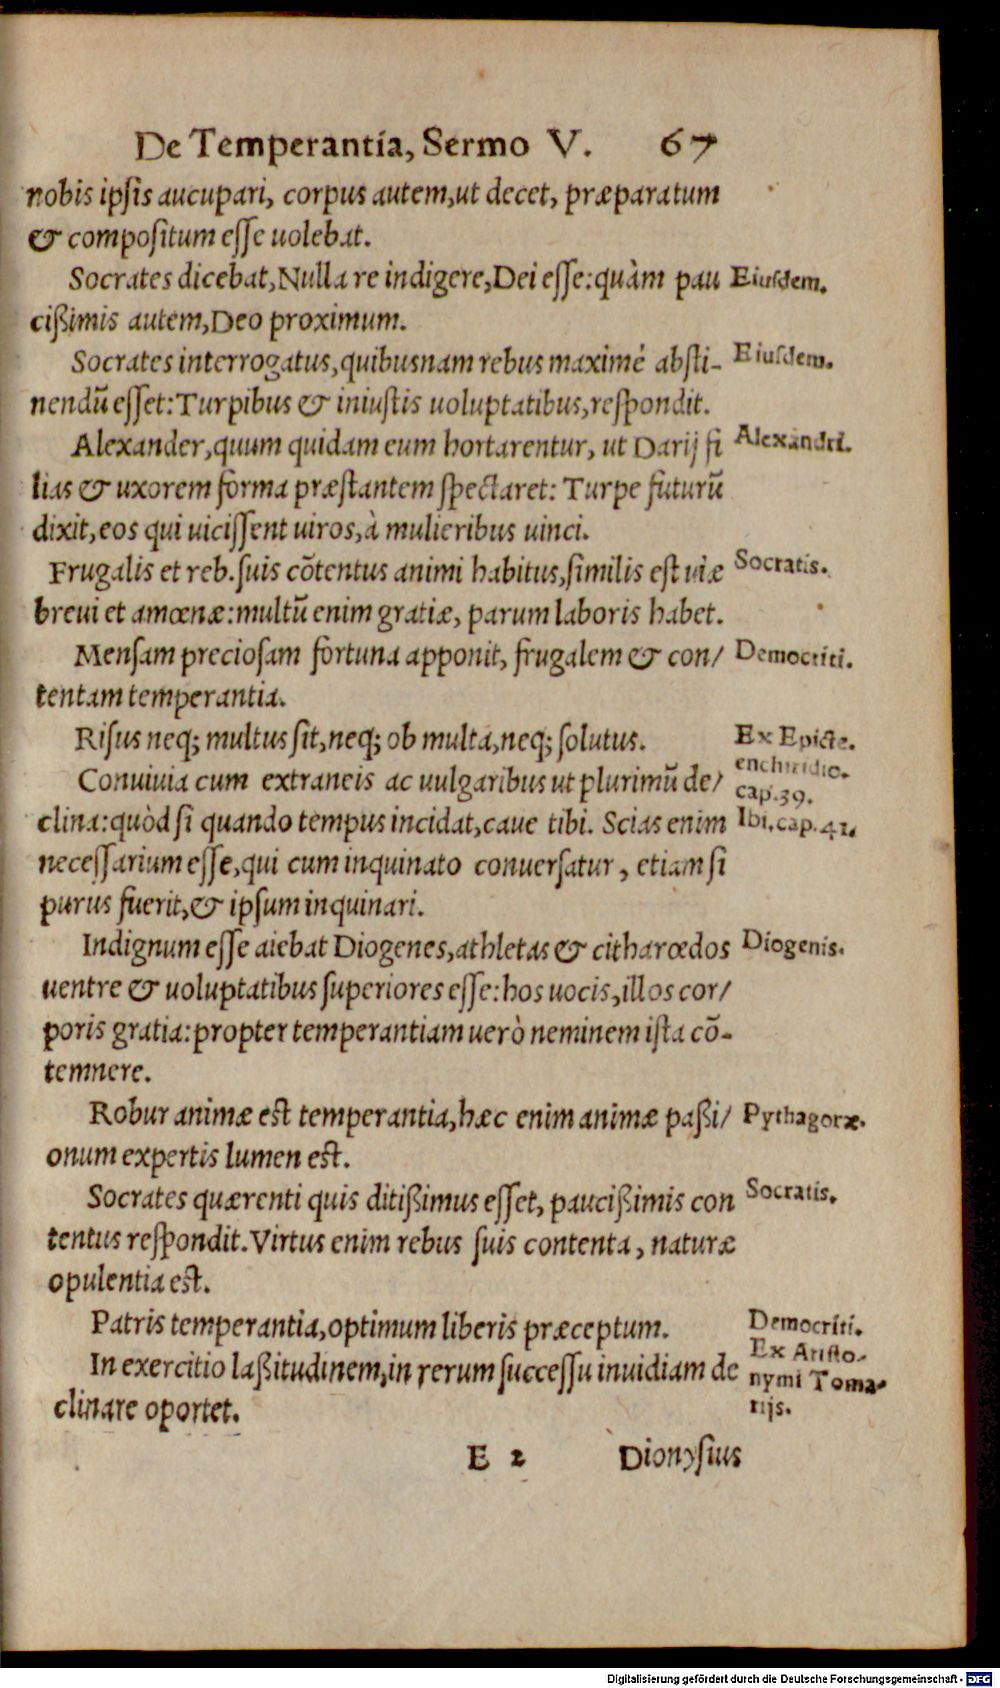 De Temperantia, Sermo V. 67
nobis ipsis aucupari, corpus autem, ut decet, præparatum
& compositum esse uolebat.
Socrates dicebat, Nulla re indigere, Dei esse: quàm pau Eiusdem.
cißimis autem, Deo proximum.
Socrates interrogatus, quibusnam rebus maximè absti- Eiusdem.
nendū esset: Turpibus & iniustis uoluptatibus, respondit.
Alexander, quum quidam eum hortarentur, ut Darij fi Alexandri.
lias & uxorem forma præstantem spectaret: Turpe futurū
dixit, eos qui uicissent uiros, à mulieribus uinci.
Frugalis et reb. suis cōtentus animi habitus, similis est uiæ Socratis.
breui et amœnæ: multū enim gratiæ, parum laboris habet.
Mensam preciosam fortuna apponit, frugalem & con/ Democriti.
tentam temperantia.
Risus neq; multus sit, neq; ob multa, neq; solutus. Ex Epicte.
enchiridio.
Conuiuia cum extraneis ac uulgaribus ut plurimū de/ cap. 39.
clina: quòd si quando tempus incidat, caue tibi. Scias enim Ibi. cap. 41.
necessarium esse, qui cum inquinato conuersatur, etiam si
purus fuerit, & ipsum inquinari.
Indignum esse aiebat Diogenes, athletas & citharœdos Diogenis.
uentre & uoluptatibus superiores esse: hos uocis, illos cor/
poris gratia: propter temperantiam uerò neminem ista cō-
temnere.
Robur animæ est temperantia, hæc enim animæ paßi/ Pythagoræ.
onum expertis lumen est.
Socrates quærenti quis ditißimus esset, paucißimis con Socratis.
tentus respondit. Virtus enim rebus suis contenta, naturæ
opulentia est.
Patris temperantia, optimum liberis præceptum. Democriti.
Ex Aristo-
In exercitio laßitudinem, in rerum successu inuidiam de nymi Toma-
clinare oportet. rijs.
E 2 Dionysius
Digitalisierung gefördert durch die Deutsche Forschungsgemeinschaft - DFG